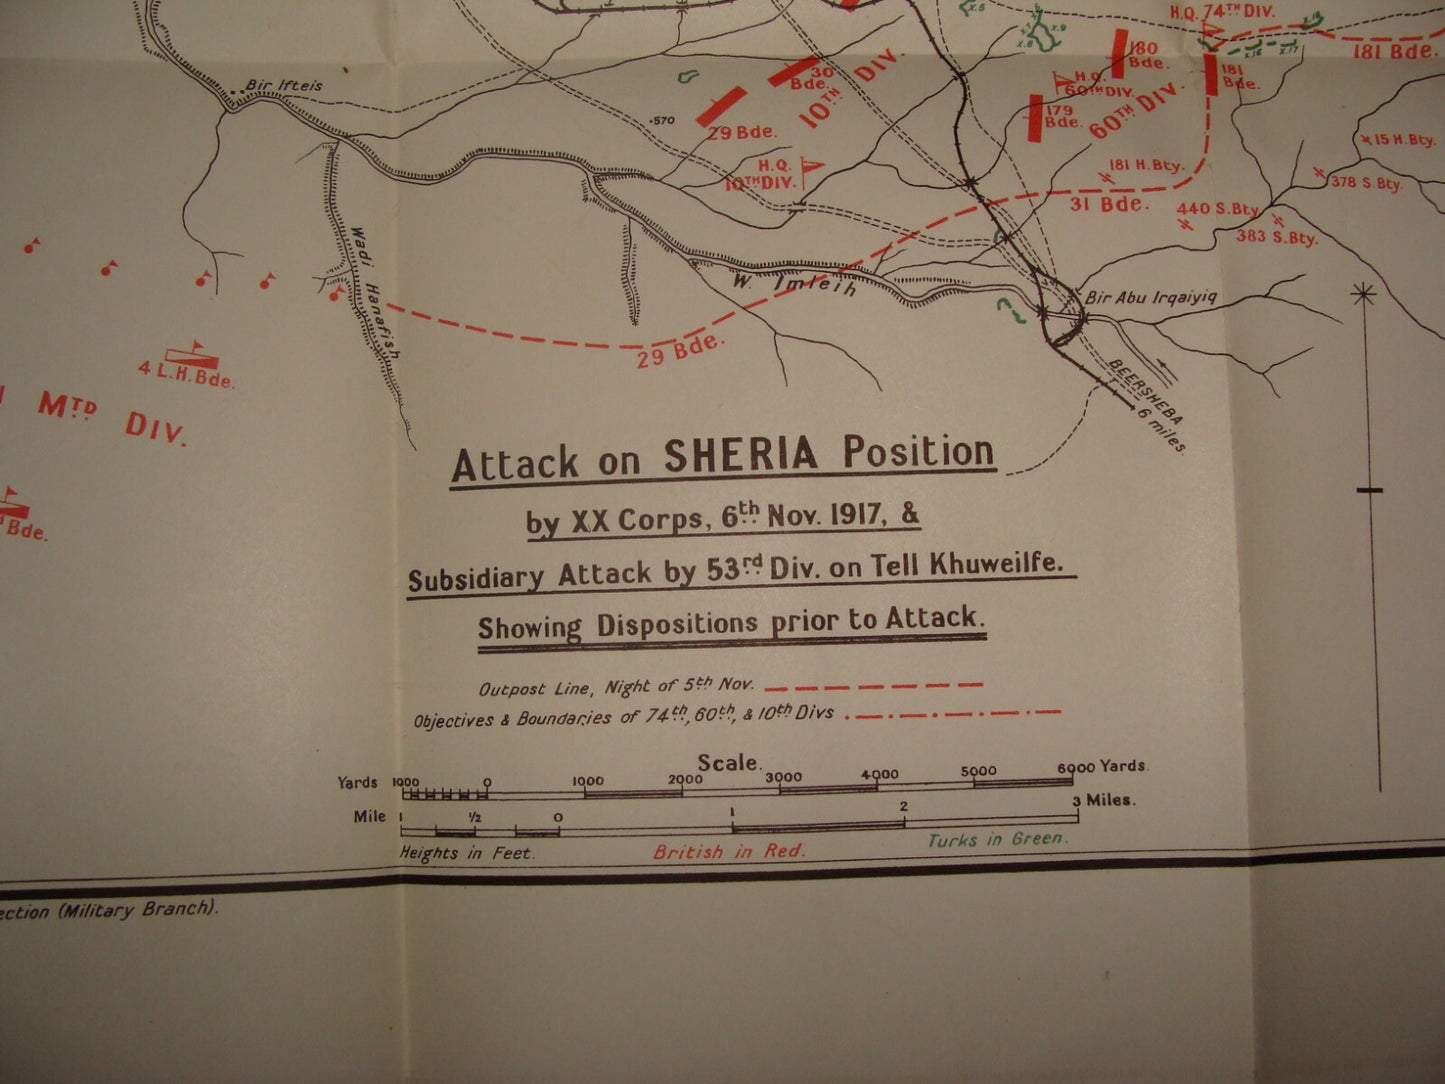 H.Q. 74TH DIV.
181 Bde.
180
Bde.
181
Bde.
H.Q.
60TH DIV.
60TH DIV.
179
Bde.
10TH DIV.
30
Bde.
29 Bde.
•570
H.Q.
10TH DIV.
x.5
x.8
x.9
x.16
x.17
Bir Ifteis
15 H. Bty.
181 H. Bty.
378 S. Bty.
31 Bde.
440 S. Bty.
383 S. Bty.
Wadi Hanafish
W. Imleih
Bir Abu Irqaiyiq
29 Bde.
BEERSHEBA
6 miles.
4 L.H. Bde.
MTD DIV.
Bde.
Attack on SHERIA Position
by XX Corps, 6th Nov. 1917, &
Subsidiary Attack by 53rd Div. on Tell Khuweilfe.
Showing Dispositions prior to Attack.
Outpost Line, Night of 5th Nov.
Objectives & Boundaries of 74th, 60th, & 10th Divs
Scale.
Yards 1000 0 1000 2000 3000 4000 5000 6000 Yards.
Mile 1 ½ 0 1 2 3 Miles.
Heights in Feet. British in Red. Turks in Green.
ection (Military Branch).